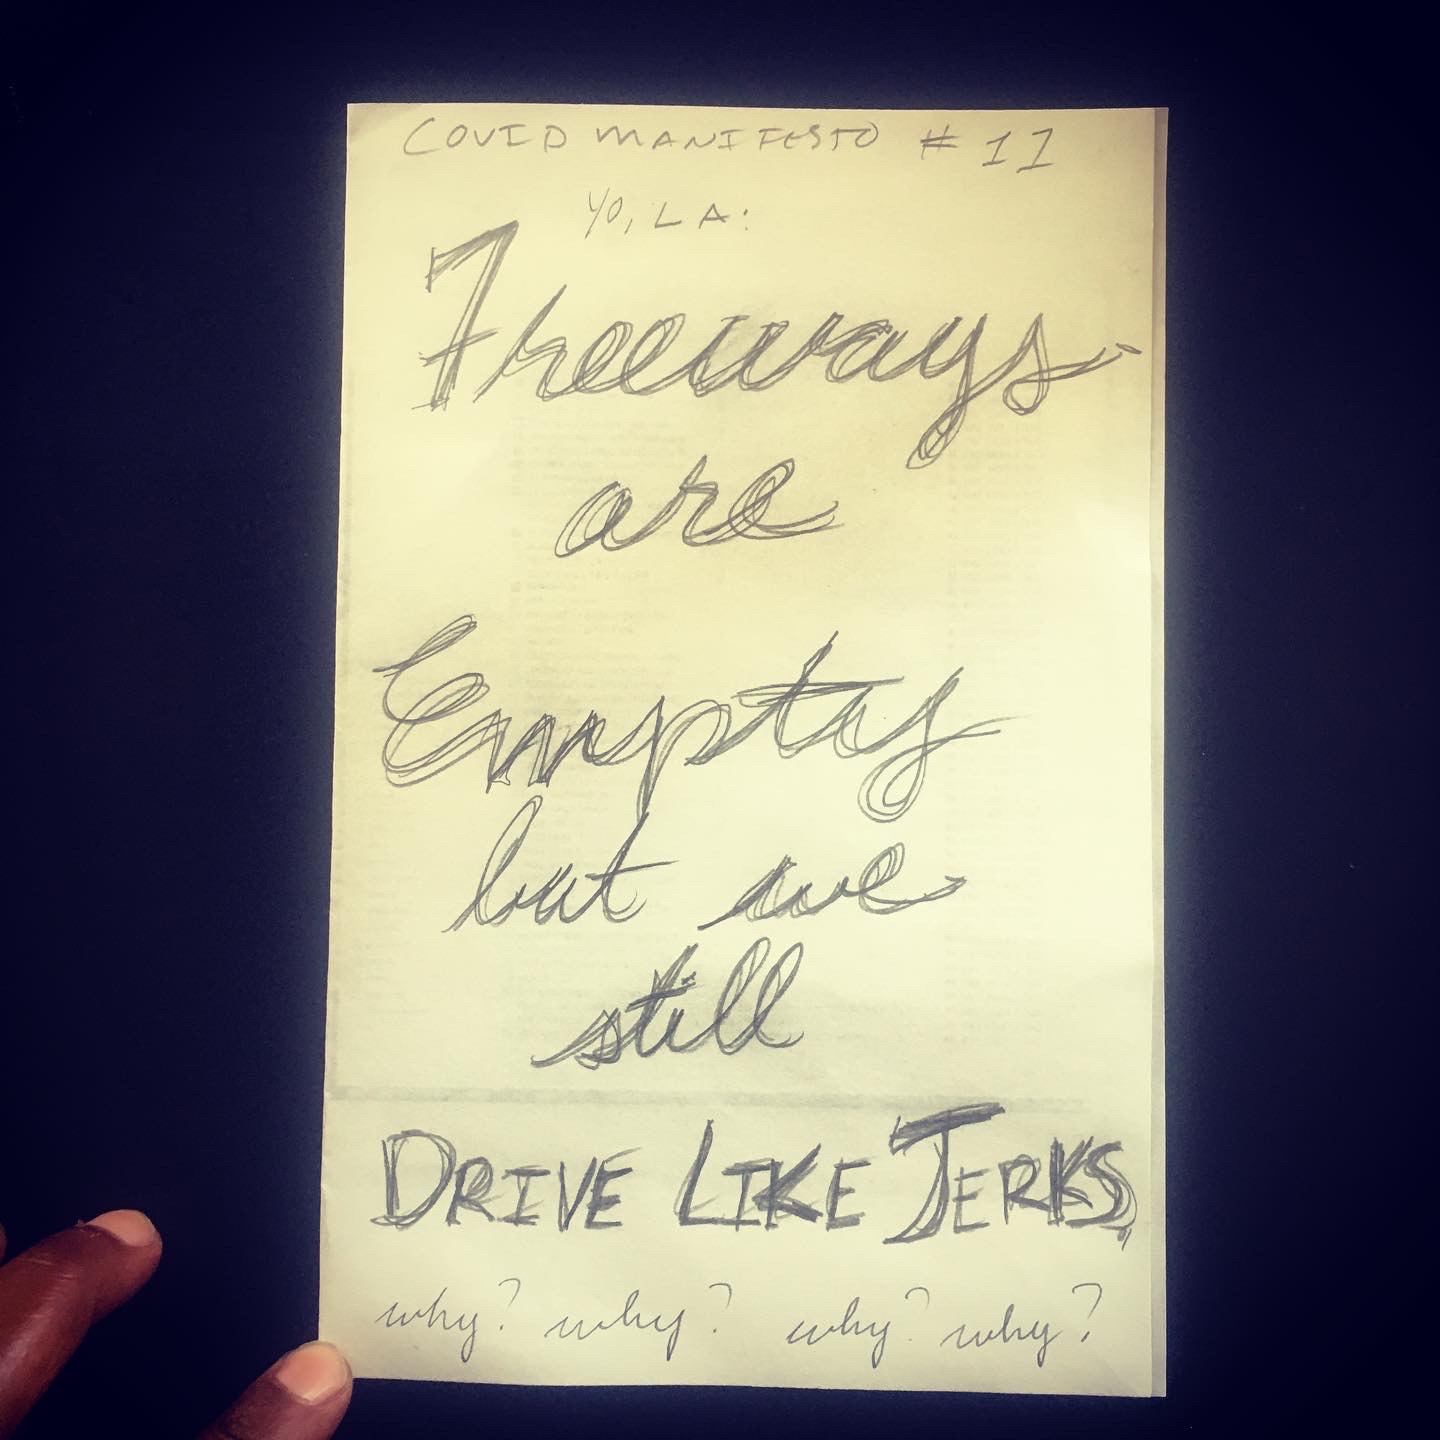 COVID MANIFESTO # 11
YO, LA:
Freeways
are
Empty
but we
still
DRIVE LIKE JERKS,
why? why? why? why?